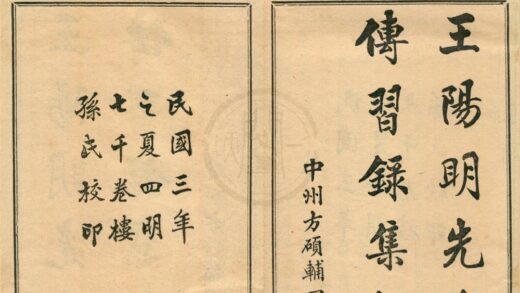 王陽明先
傳習錄集
中州方碩輔
民國三年
之夏四明
七千卷樓
孫氏校印